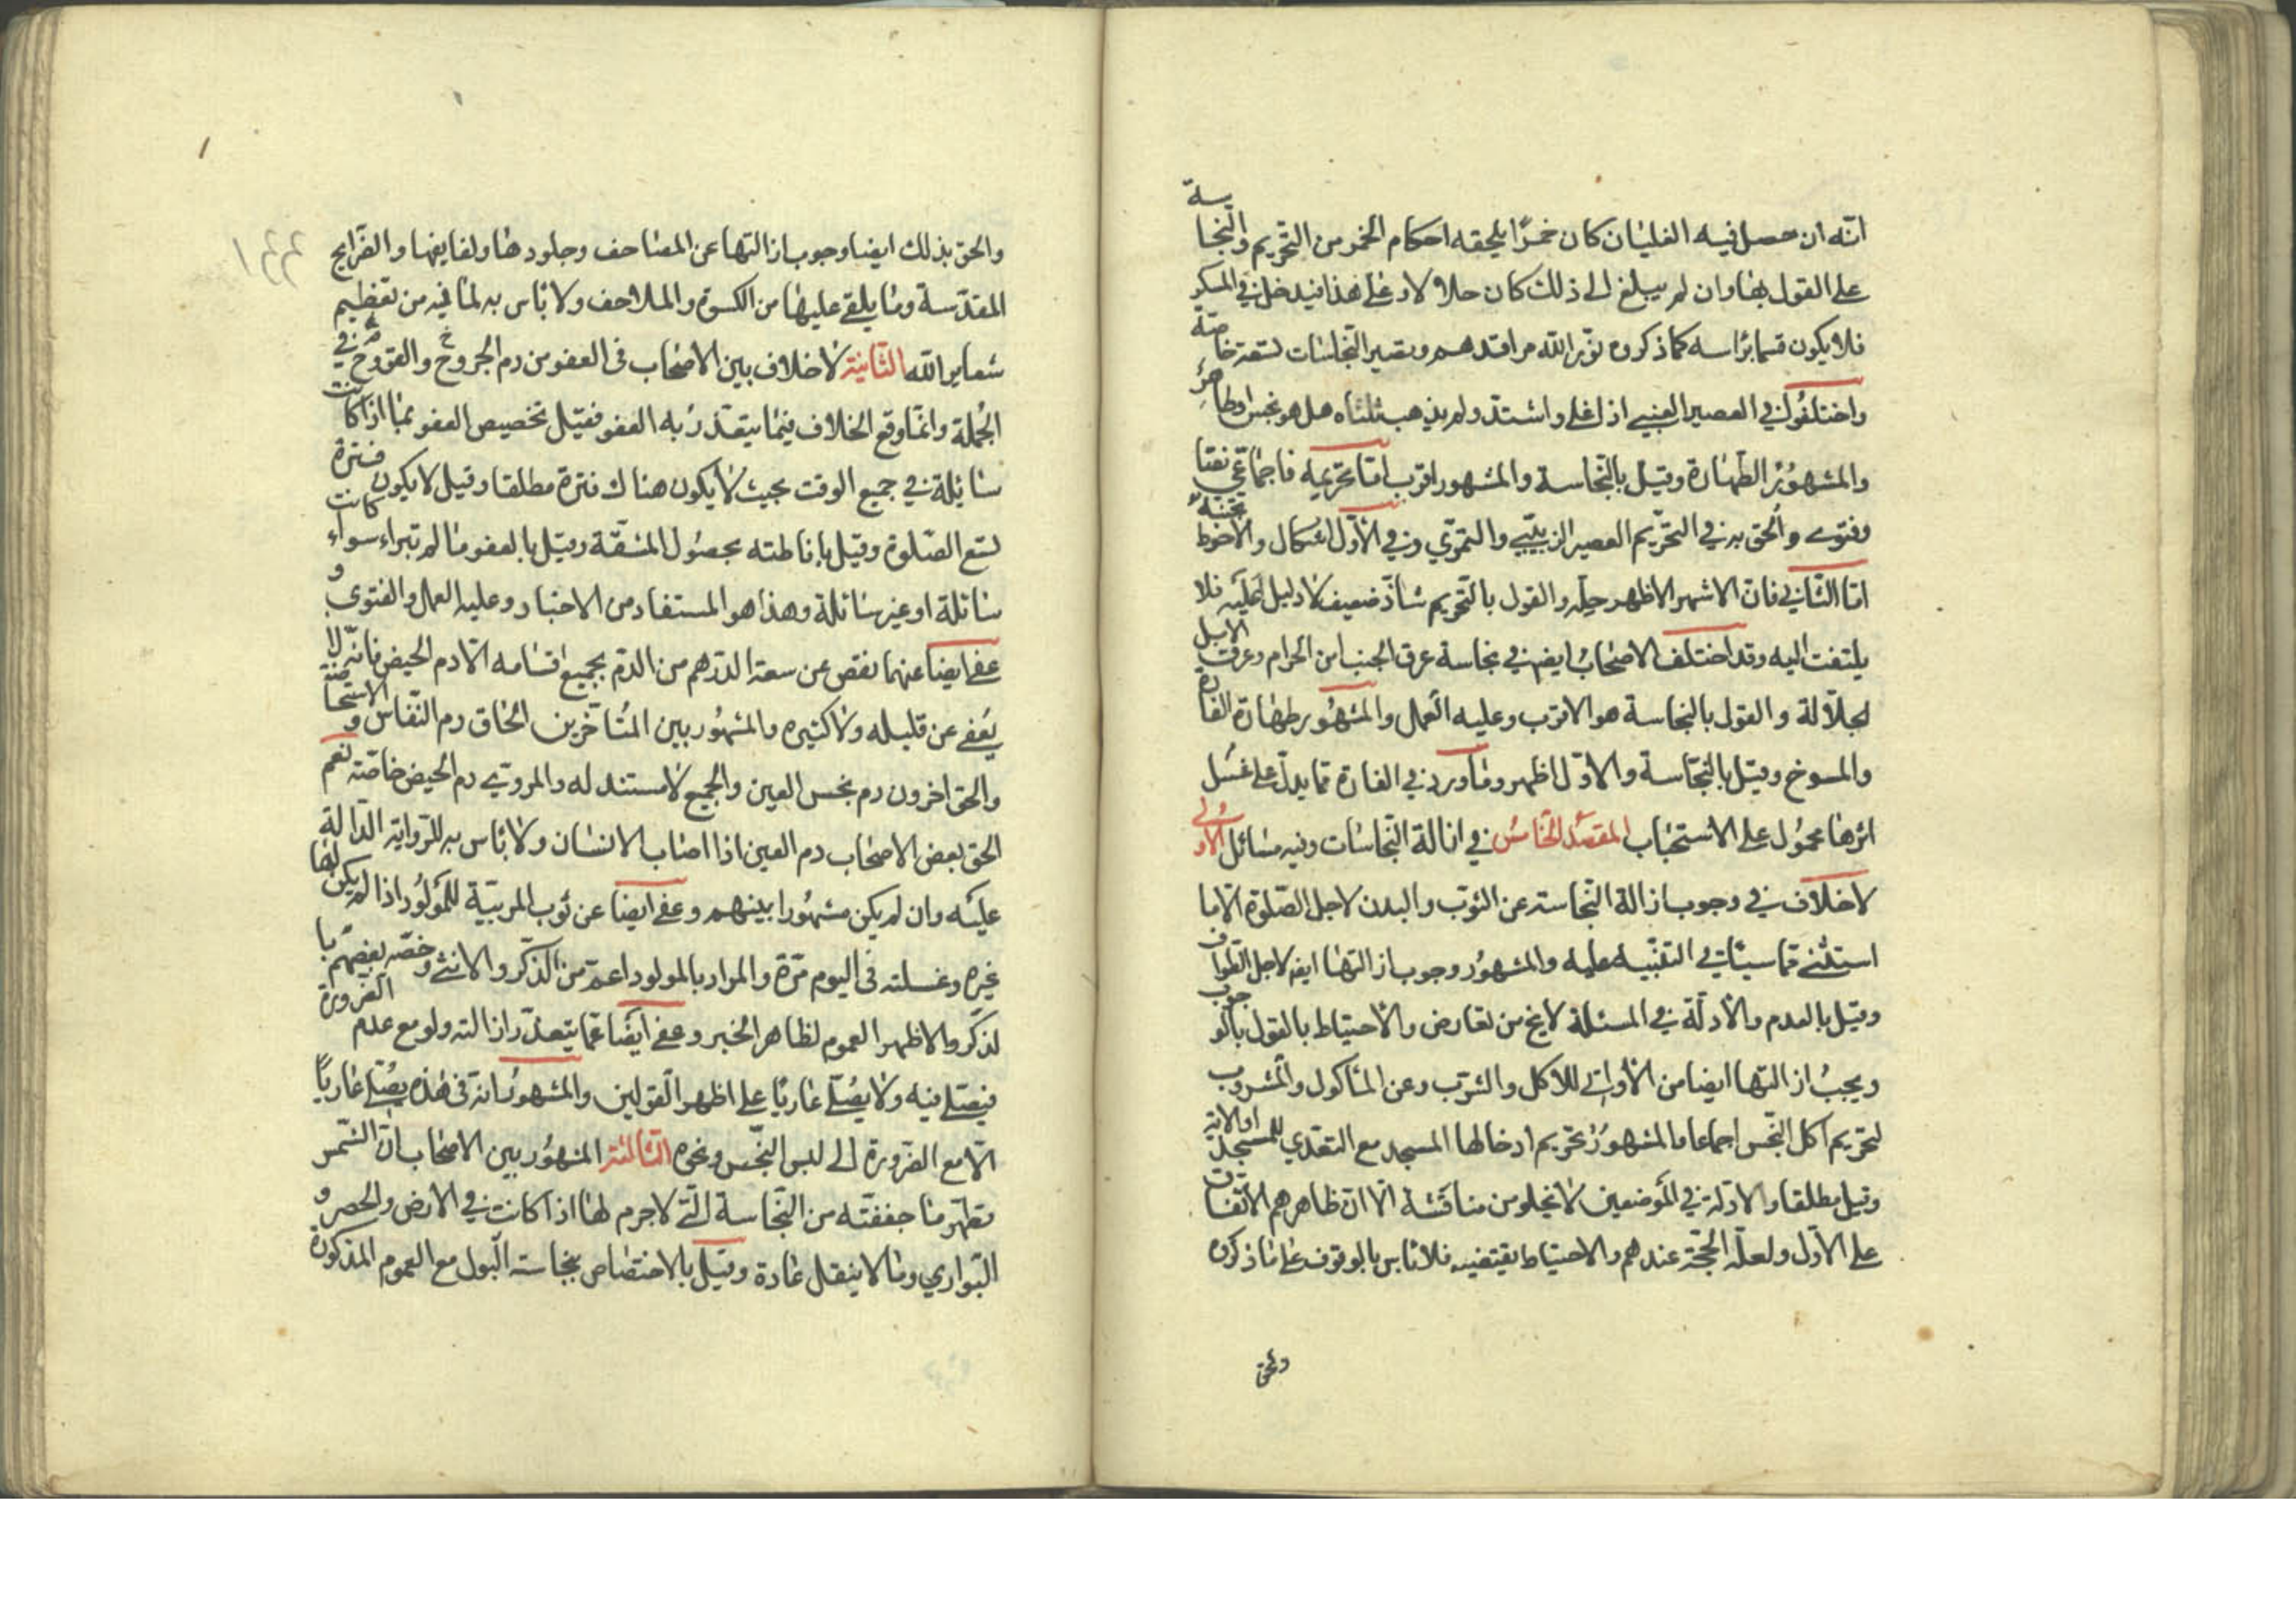 انّه ان حصل فيه الغليان كان خمرًا يلحقه احكام الخمر من التحريم والنجاسة
على القول بها وان لم يبلغ الى ذلك كان حلالا وعلى هذا فيدخل في المسكر
فلا يكون قسما برأسه كما ذكروه نوّر الله مراقدهم وتصير النجاسات تسعة خاصّة
واختلفوا في العصير العنبي اذا غلى واشتدّ ولم يذهب ثلثاه هل هو نجس او طاهر
والمشهور الطهارة وقيل بالنجاسة والمشهور اقرب امّا تحريمه فاجماعي نصّا
وفتوى والحق به في التحريم العصير الزبيبي والتمري وفي الاوّل اشكال والاحوط تجنّبه
امّا الثاني فانّ الاشهر الاظهر حلّه والقول بالتحريم شاذّ ضعيف لا دليل عليه فلا
يلتفت اليه وقد اختلف الاصحاب ايضا في نجاسة عرق الجنب من الحرام وعرق الابل
الجلّالة والقول بالنجاسة هو الاقرب وعليه العمل والمشهور طهارة الفارة
والمسوخ وقيل بالنجاسة والاوّل اظهر وما ورد في الفارة ممّا يدلّ على غسل
اثرها محمول على الاستحباب المقصد الخامس في ازالة النجاسات وفيه مسائل الاولى
لا خلاف في وجوب ازالة النجاسة عن الثوب والبدن لاجل الصلوة الّا ما
استثنى ممّا سياتي التنبيه عليه والمشهور وجوب ازالتها ايضا لاجل الطواف
وقيل بالعدم والادلّة في المسئلة لا يخ من تعارض والاحتياط بالقول بالوجوب
ويجب ازالتها ايضا من الاواني للاكل والشرب وعن الماكول والمشروب
لتحريم اكل النجس اجماعا والمشهور تحريم ادخالها المسجد مع التعدي للمسجد او الاته
وقيل مطلقا والادلة في الموضعين لا تخلو من مناقشة الّا انّ ظاهرهم الاتفاق
على الاوّل ولعلّه الحجّة عندهم والاحتياط يقتضيه فلا باس بالوقوف على ما ذكروه
والحق
والحق بذلك ايضا وجوب ازالتها عن المصاحف وجلودها ولفايفها والضرايح
المقدّسة وما يلقى عليها من الكسوة والملاحف ولا باس به لما فيه من تعظيم
شعاير الله الثانية لا خلاف بين الاصحاب فى العفو من دم الجروح والقروح في
الجملة وانّما وقع الخلاف فيما يتقدّر به العفو فقيل تخصيص العفو بما اذا كانت
سائلة في جميع الوقت بحيث لا يكون هناك فترة مطلقا وقيل لا يكون فترة
لتسع الصلوة وقيل باناطته بحصول المشقّة وقيل بالعفو ما لم تبراء سواء كانت
سائلة او غير سائلة وهذا هو المستفاد من الاخبار وعليه العمل والفتوى و
عفى ايضا عمّا نقص عن سعة الدرهم من الدم بجميع اقسامه الّا دم الحيض فانه لا
يعفى عن قليله ولا كثيره والمشهور بين المتاخّرين الحاق دم النفاس والاستحاضة
والحق اخرون دم نجس العين والجميع لا مستند له والمروي دم الحيض خاصّة نعم
الحق بعض الاصحاب دم العين اذا اصاب الانسان ولا باس به للرواية الدّالة
عليه وان لم يكن مشهورا بينهم وعفى ايضا عن ثوب المربية للمولود اذا لم يكن لها
غيره وغسلته فى اليوم مرّة والمراد بالمولود اعم من الذكر والانثى وخصّه بعضهم با
لذكر والاظهر العموم لظاهر الخبر وعفى ايضا عمّا يتعذّر ازالته ولو مع عدم الضرورة
فيصلى فيه ولا يصلى عاريًا على اظهر القولين والمشهور انه فى هذه يصلى عاريًا
الّا مع الضرورة الى لبس النجس ونحوه الثالثة المشهور بين الاصحاب انّ الشمس
تطهّر ما جففته من النجاسة الّتي لا جرم لها اذا كانت في الارض والحصر و
البواري وما لا ينقل عادة وقيل بالاختصاص بنجاسة البول مع العموم المذكورة